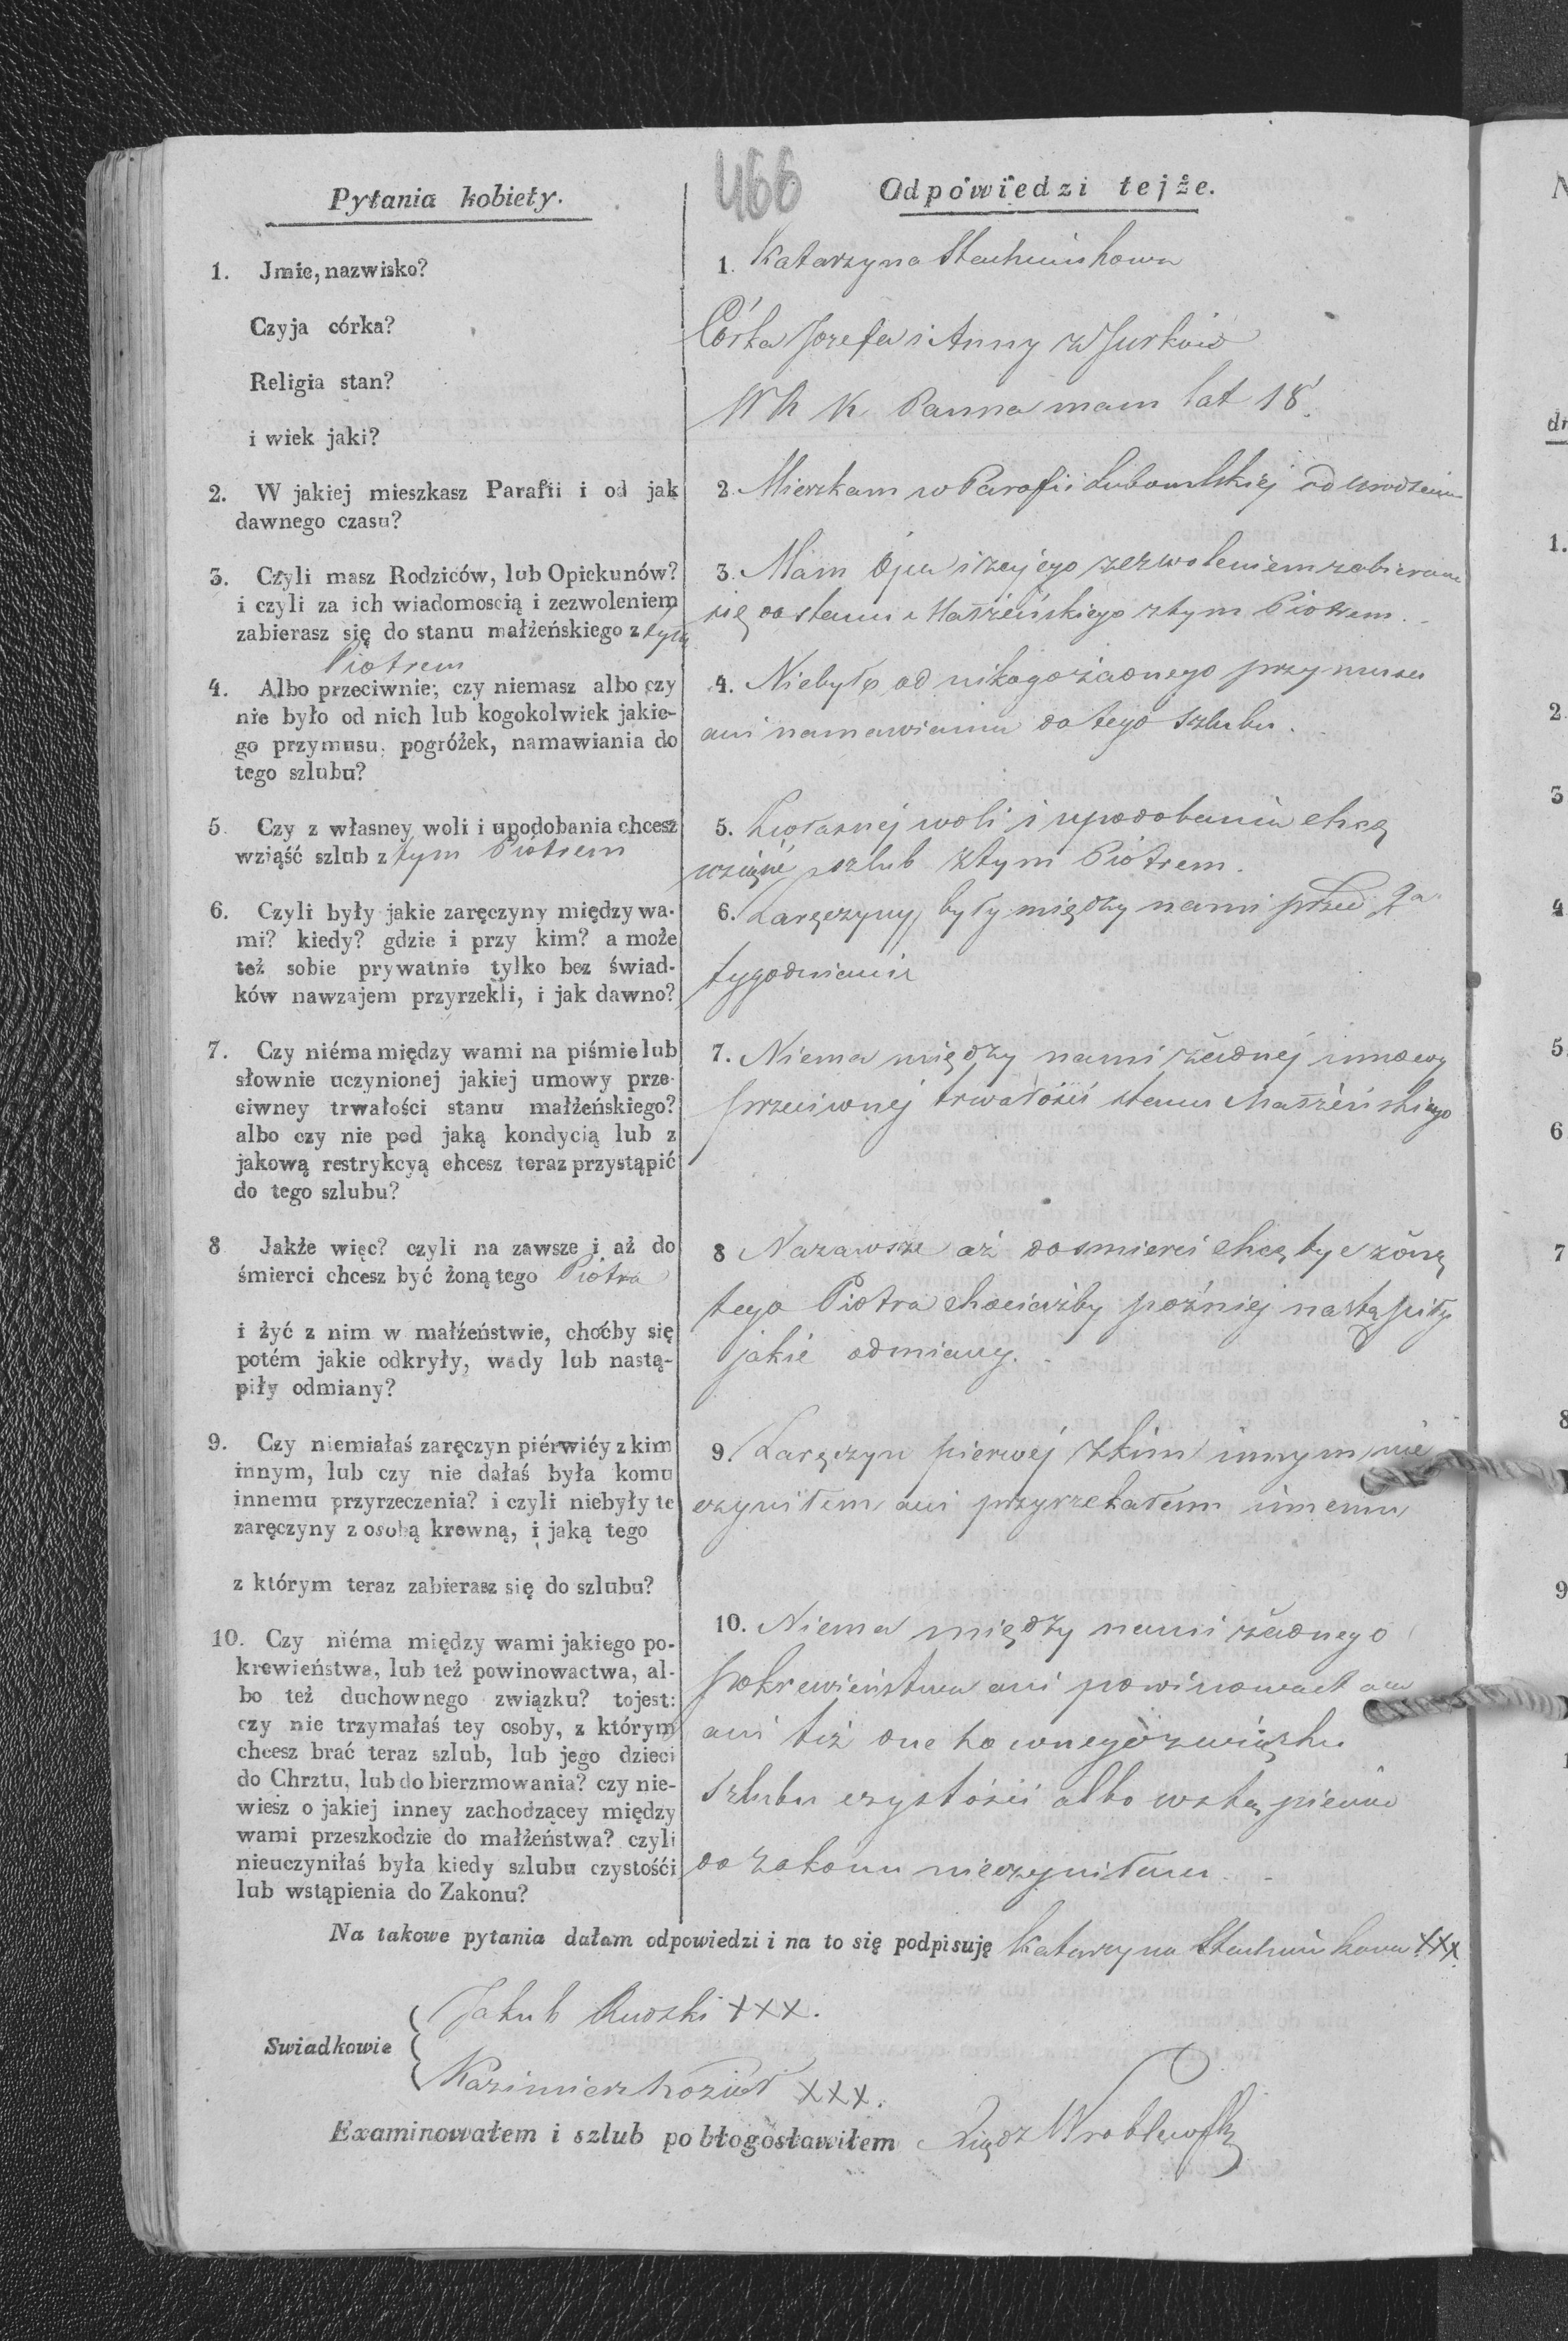 466
Pytania kobiety.
1. Jmie, nazwisko?
Czyja córka?
Religia stan?
i wiek jaki?
2. W jakiej mieszkasz Parafii i od jak
dawnego czasu?
3. Czyli masz Rodziców, lub Opiekunów?
i czyli za ich wiadomoscią i zezwoleniem
zabierasz się do stanu małżeńskiego z tym
Piotrem
4. Albo przeciwnie; czy niemasz albo czy
nie było od nich lub kogokolwiek jakie-
go przymusu, pogróżek, namawiania do
tego szlubu?
5. Czy z własney woli i upodobania chcesz
wziąść szlub z tym Piotrem
6. Czyli były jakie zaręczyny między wa-
mi? kiedy? gdzie i przy kim? a może
też sobie prywatnie tylko bez świad-
ków nawzajem przyrzekli, i jak dawno?
7. Czy niéma między wami na piśmie lub
słownie uczynionej jakiej umowy prze-
ciwney trwałości stanu małżeńskiego?
albo czy nie pod jaką kondycią lub z
jakową restrykcyą chcesz teraz przystąpić
do tego szlubu?
8 Jakże więc? czyli na zawsze i aż do
śmierci chcesz być żoną tego Piotra
i żyć z nim w małżeństwie, choćby się
potém jakie odkryły, wady lub nastą-
piły odmiany?
9. Czy niemiałaś zaręczyn piérwiéy z kim
innym, lub czy nie dałaś była komu
innemu przyrzeczenia? i czyli niebyły te
zaręczyny z osobą krewną, i jaką tego
z którym teraz zabierasz się do szlubu?
10. Czy niéma między wami jakiego po-
krewieństwa, lub też powinowactwa, al-
bo też duchownego związku? tojest:
czy nie trzymałaś tey osoby, z którym
chcesz brać teraz szlub, lub jego dzieci
do Chrztu, lub do bierzmowania? czy nie-
wiesz o jakiej inney zachodzącey między
wami przeszkodzie do małżeństwa? czyli
nieuczyniłaś była kiedy szlubu czystośći
lub wstąpienia do Zakonu?
Odpowiedzi tejże.
1. Katarzyna
Córka Jozefa i Anny z Jurków
W R K Panna mam lat 18.
2. Mieszkam w Parafii Lubomlskiej od urodzenia
3. Mam Ojca i z jego zezwoleniem zabieram
się do stanu Małżeńskiego z tym Piotrem.
4. Niebyło od nikogo żadnego przymusu
ani namawiania do tego szlubu.
5. Zwłasnej woli i upodobania chcę
wziąść szlub z tym Piotrem.
6. Zaręczyny były między nami przed 2a
tygodniami
7. Niema między nami żadnej umowy
przeciwnej trwałości stanu Małżeńskiego
8 Nazawsze aż do smierci chcę być żoną
tego Piotra chociażby pożniej nastąpiły
jakie odmiany.
9. Zaręczyn pierwej z kim innym nie
czyniłem ani przyrzekałem innemu
10. Niema między nami żadnego
pokrewieństwa ani powinowactwa
ani też duchownego związku
szlubu czystości albo wstąpienia
do zakonu nieczyniłam
Na takowe pytania dałam odpowiedzi i na to się podpisuję Katarzyna XXX
Swiadkowie
Jakub Rudzki XXX.
Kazimierz Kozioł XXX.
Examinowałem i szlub pobłogosławiłem Xiądz Wroblewski